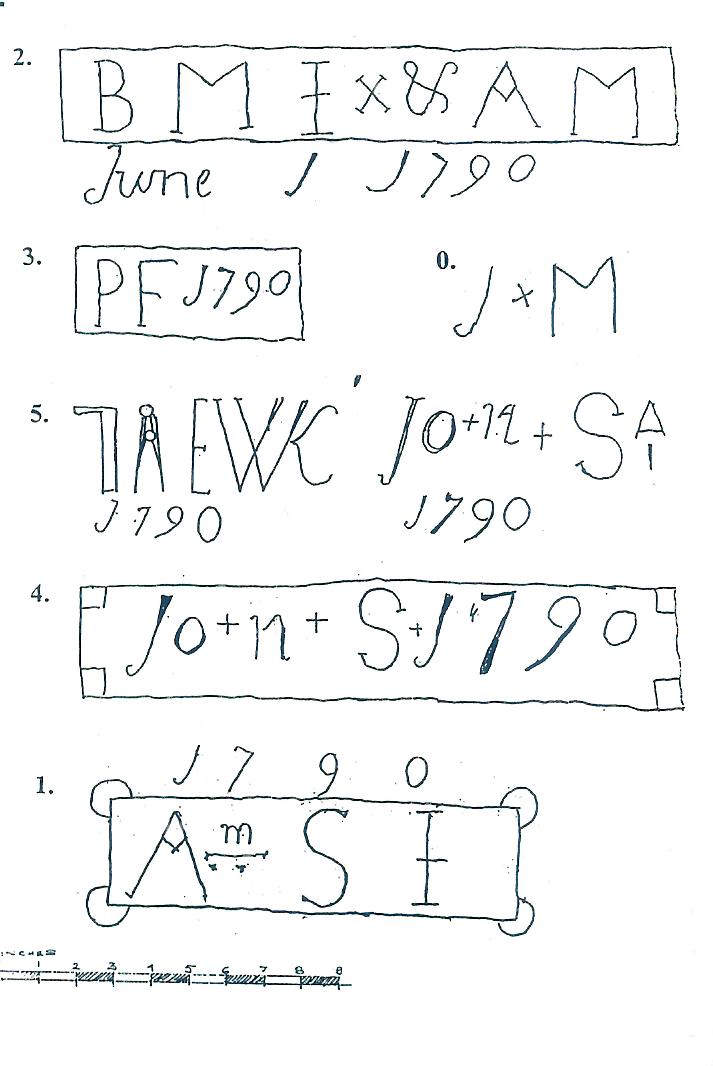 2. B M I x & A M
June 1 1790
3. PF 1790
0. J x M
5. EWK Jo+n + S
1790 1790
4. Jo+n+ S+J 1790
1. 1 7 9 0
A m S I
INCHES
2 3 4 5 6 7 8 9